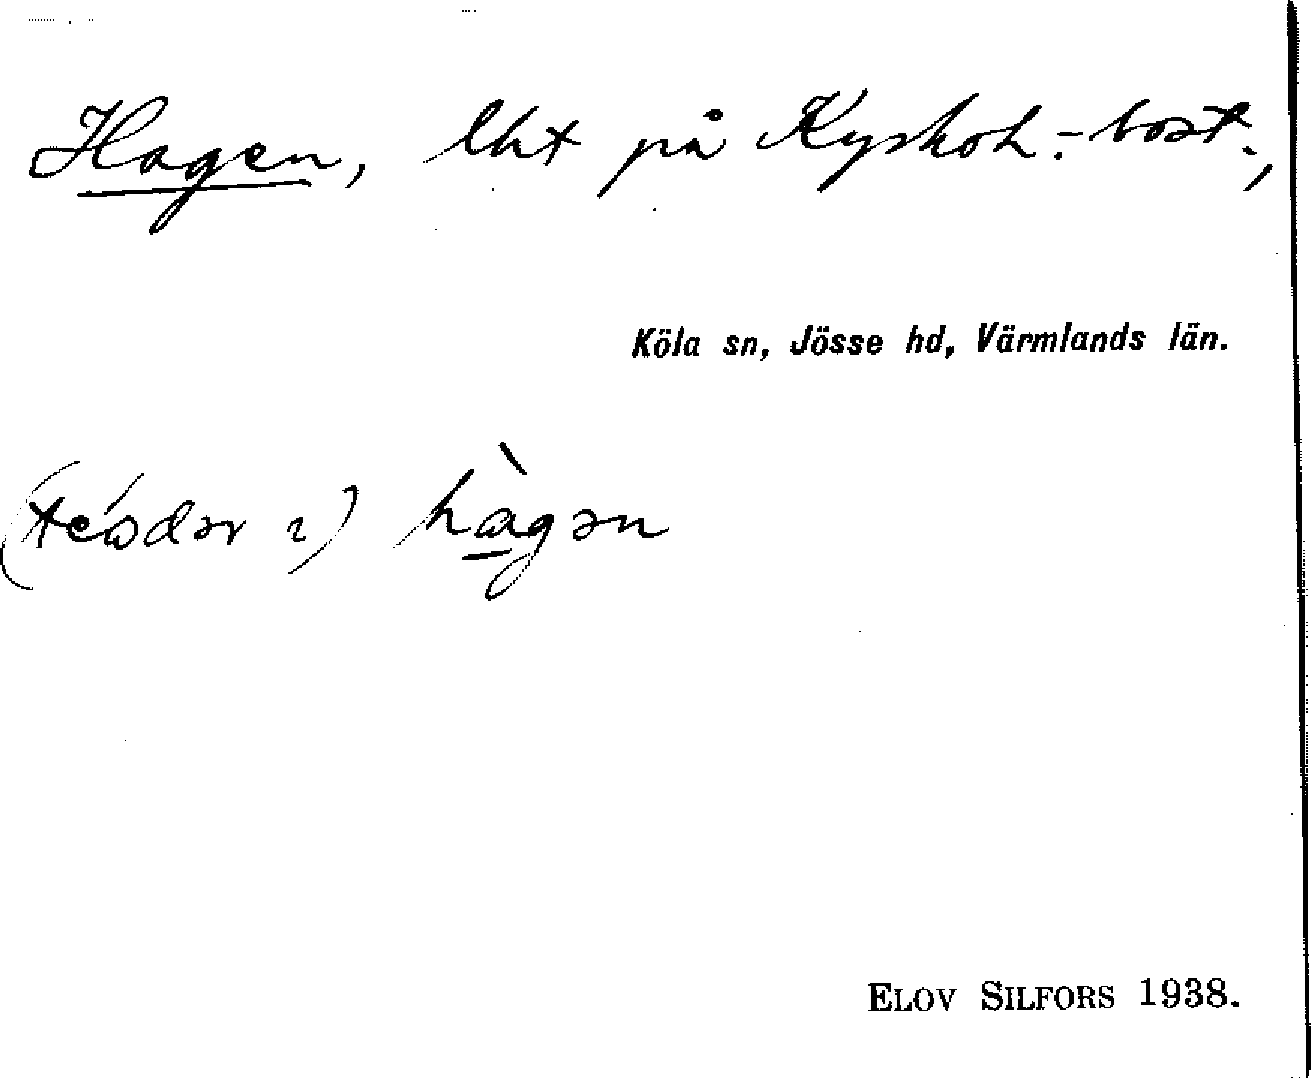 Hagen, lht på Kyrkoh.-bost.,
Köla sn, Jösse hd, Värmlands län.
(teodər ı) hàgən
ELOV SILFORS 1938.